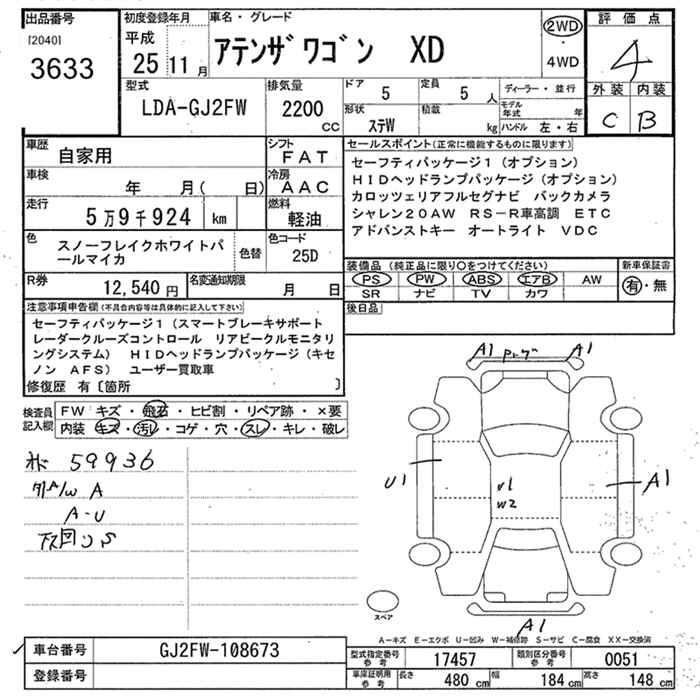 出品番号 初度登録年月 車名・グレード 評価点
[2040] 平成 アテンザワゴン XD 2WD・4WD 4
3633 25 11月
外装 内装
型式 排気量 ドア 5 定員 5人 ディーラー・並行 C B
LDA-GJ2FW 2200cc 形状 ステW 積載 kg モデル年式 年
ハンドル 左・右
車歴 自家用 シフト FAT
車検 年 月( 日) 冷房 AAC
走行 5万9千924 km 燃料 軽油
色 スノーフレイクホワイトパールマイカ 色替 色コード 25D
R券 12,540円 名変通知期限 月 日
セールスポイント(正常に機能するものに限ります)
セーフティパッケージ1(オプション)
HIDヘッドランプパッケージ(オプション)
カロッツェリアフルセグナビ バックカメラ
シャレン20AW RS-R車高調 ETC
アドバンストキー オートライト VDC
装備品(純正品に限り○をつけてください) 新車保証書
PS PW ABS エアB AW 有・無
SR ナビ TV カワ
後日品
注意事項申告欄(不具合内容等は具体的に記入して下さい)
セーフティパッケージ1(スマートブレーキサポート
レーダークルーズコントロール リアビークルモニタリ
ングシステム) HIDヘッドランプパッケージ(キセ
ノン AFS) ユーザー買取車
修復歴 有〔箇所 〕
検査員記入欄 FW キズ・飛石・ヒビ割・リペア跡・×要
内装 キズ・汚レ・コゲ・穴・スレ・キレ・破レ
59936
A
A-U
A1 A1
U1 U1 W2 A1
スペア
A1
A-キズ E-エクボ U-凹み W-補修跡 S-サビ C-腐食 XX-交換済
車台番号 GJ2FW-108673
登録番号
型式指定番号 参考 17457 類別区分番号 参考 0051
車庫証明用 参考 長さ 480cm 幅 184cm 高さ 148cm